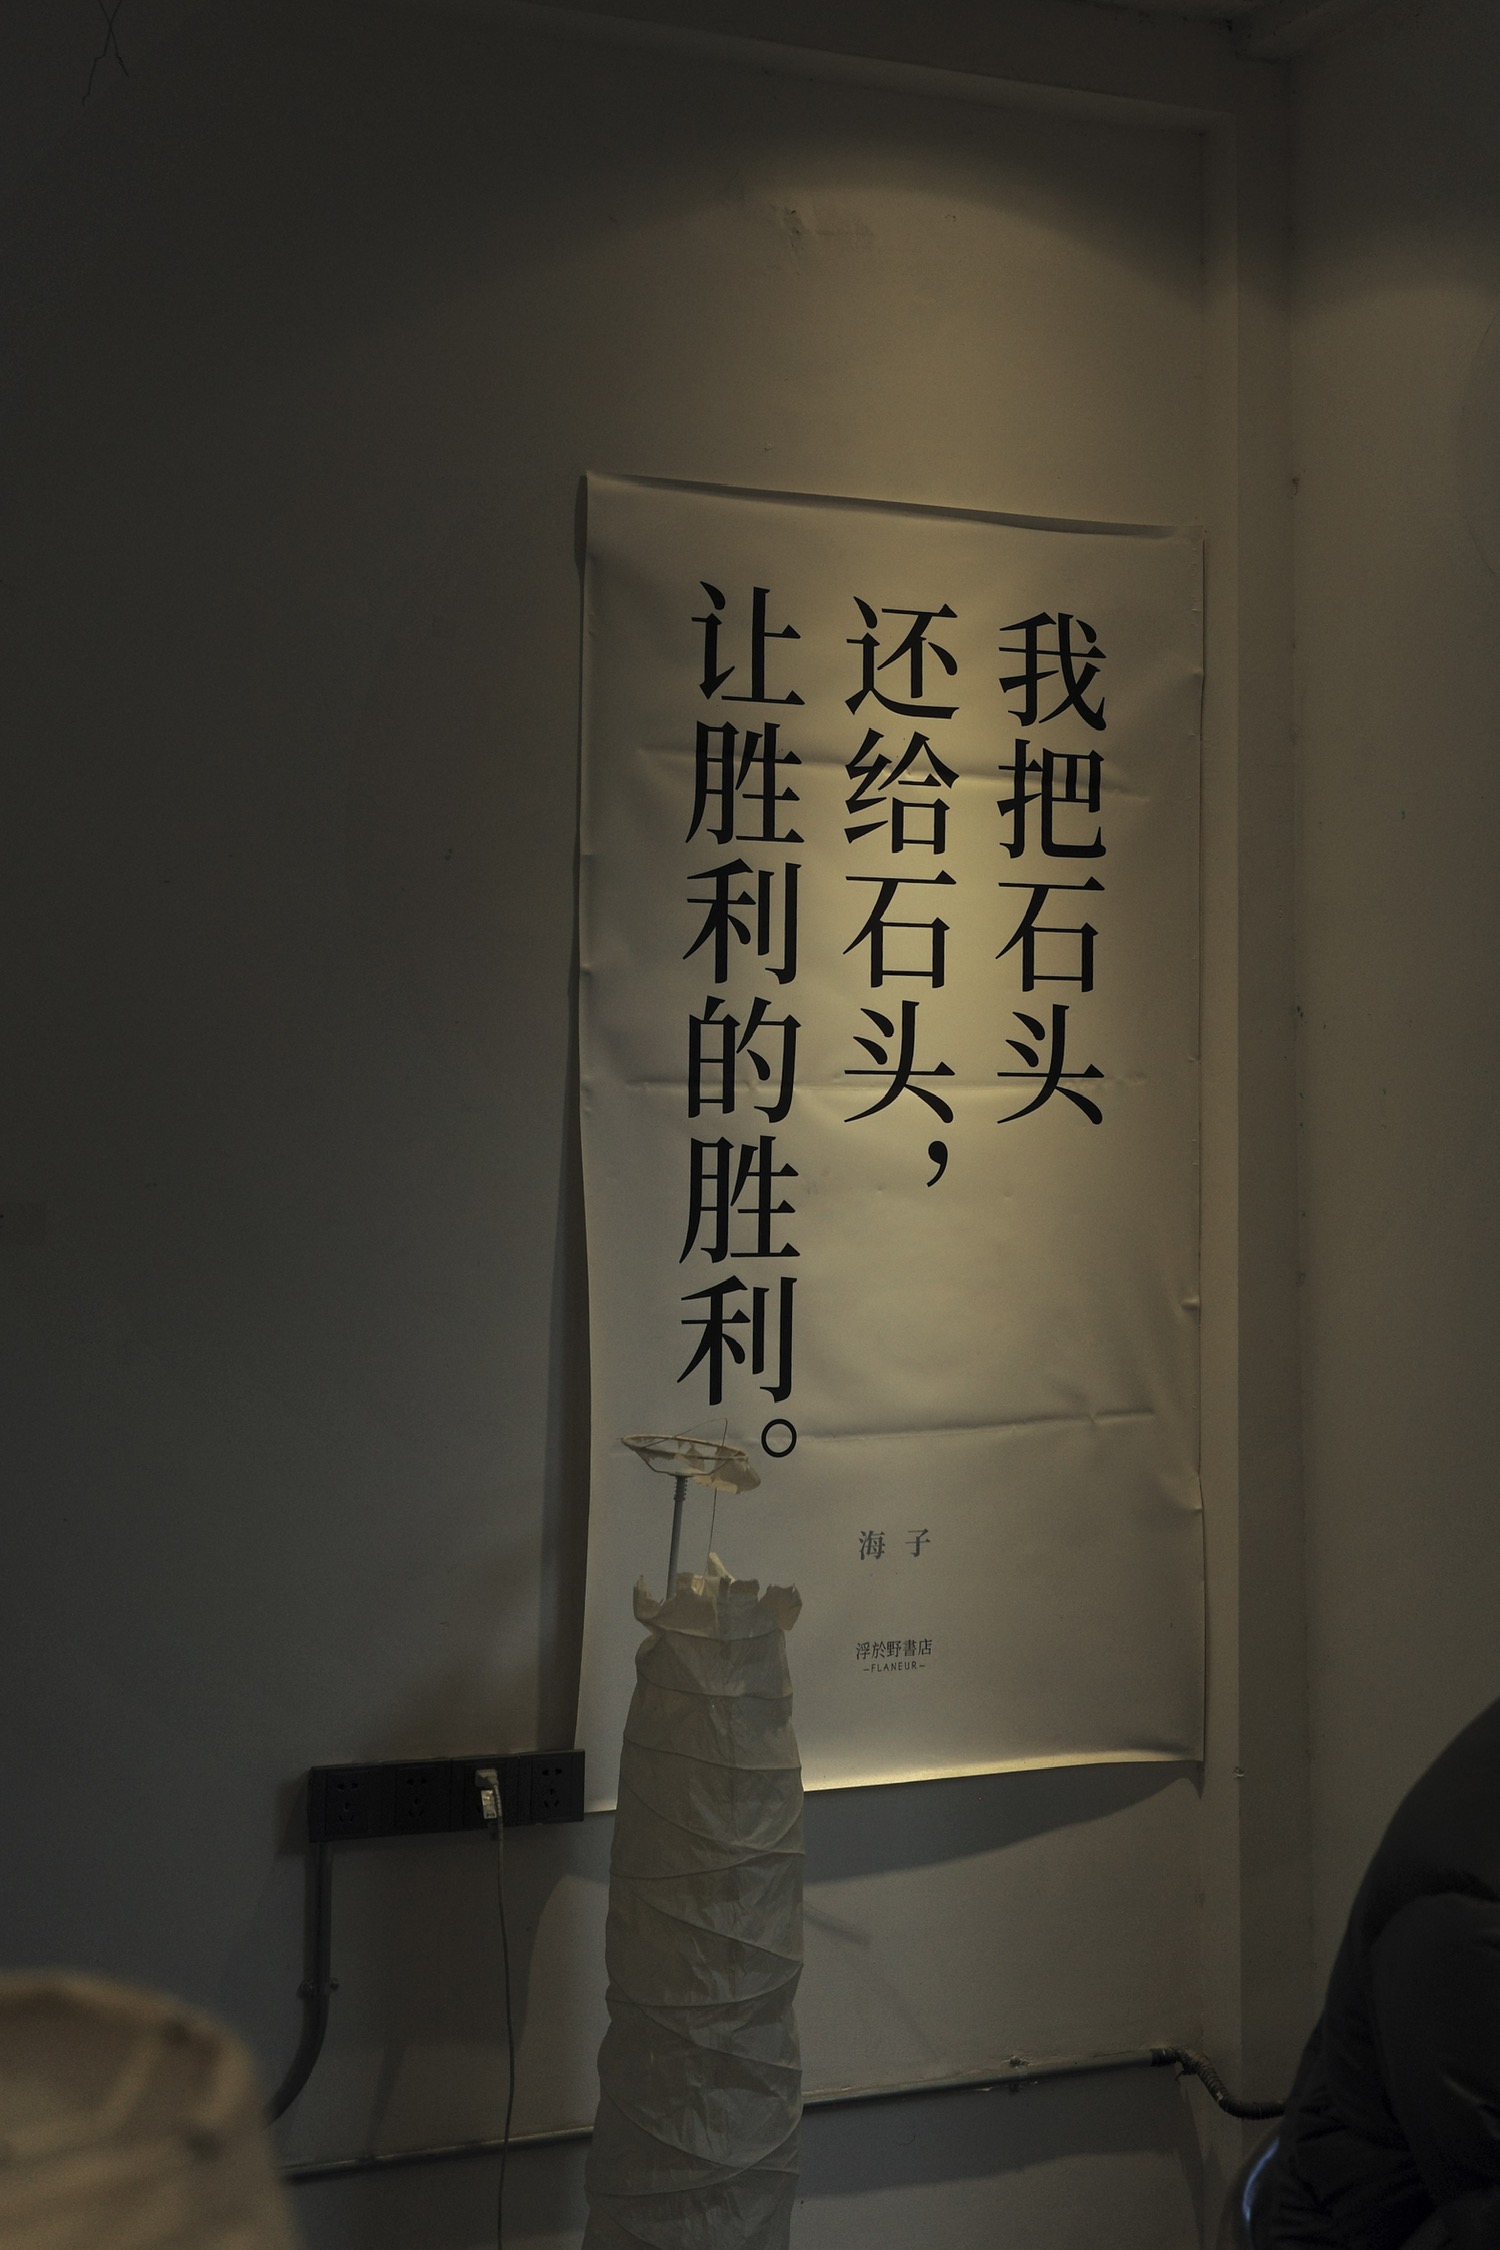 我把石头
还给石头，
让胜利的胜利。
海子
浮於野書店
–FLANEUR–